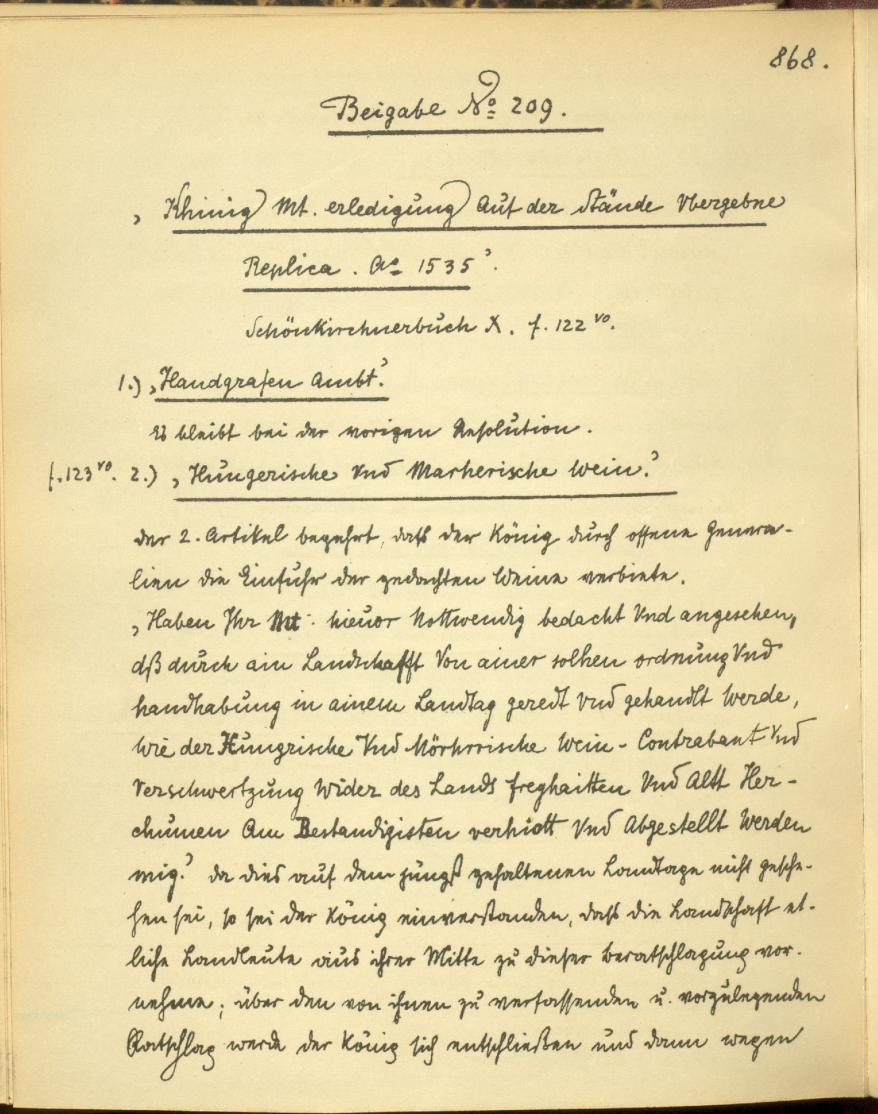 868.
Beigabe No 209.
„Khinig Mt. erledigung Auf der Stände Vbergebne
Replica. Ao 1535".
Schönkirchnerbuch X. f. 122 vo.
1.) „Handgrafen Ambt".
Es bleibt bei der vorigen Resolution.
f. 123 vo. 2.) „Hungerische Vnd Marherische Wein."
Der 2. Artikel begehrt, daß der König durch offene Genera-
lien die Einfuhr der gedachten Weine verbiete.
„Haben Ihr Mt. hieuor Nottwendig bedacht Vnd angesehen,
dß durch ain Landschafft Von ainer solhen ordnung Vnd
handhabung in ainem Landtag geredt vnd gehandlt Werde,
Wie der Hungrische Vnd Mörhrische Wein-Contrabant Vnd
Verschwertzung Wider des Lands freyhaitten Vnd Altt Her-
chumen Am Bestandigisten verhiett Vnd Abgestellt Werden
mig." Da dies auf dem jüngst gehaltenen Landtage nicht gesche-
hen sei, so sei der König einverstanden, daß die Landschaft et-
liche Landleute aus ihrer Mitte zu dieser Beratschlagung vor-
nehme; über den von ihnen zu verfassenden u. vorzulegenden
Ratschlag werde der König sich entschließen und dann wegen